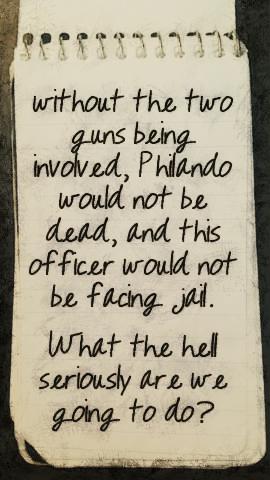 without the two
guns being
involved, Philando
would not be
dead, and this
officer would not
be facing jail.
What the hell
seriously are we
going to do?